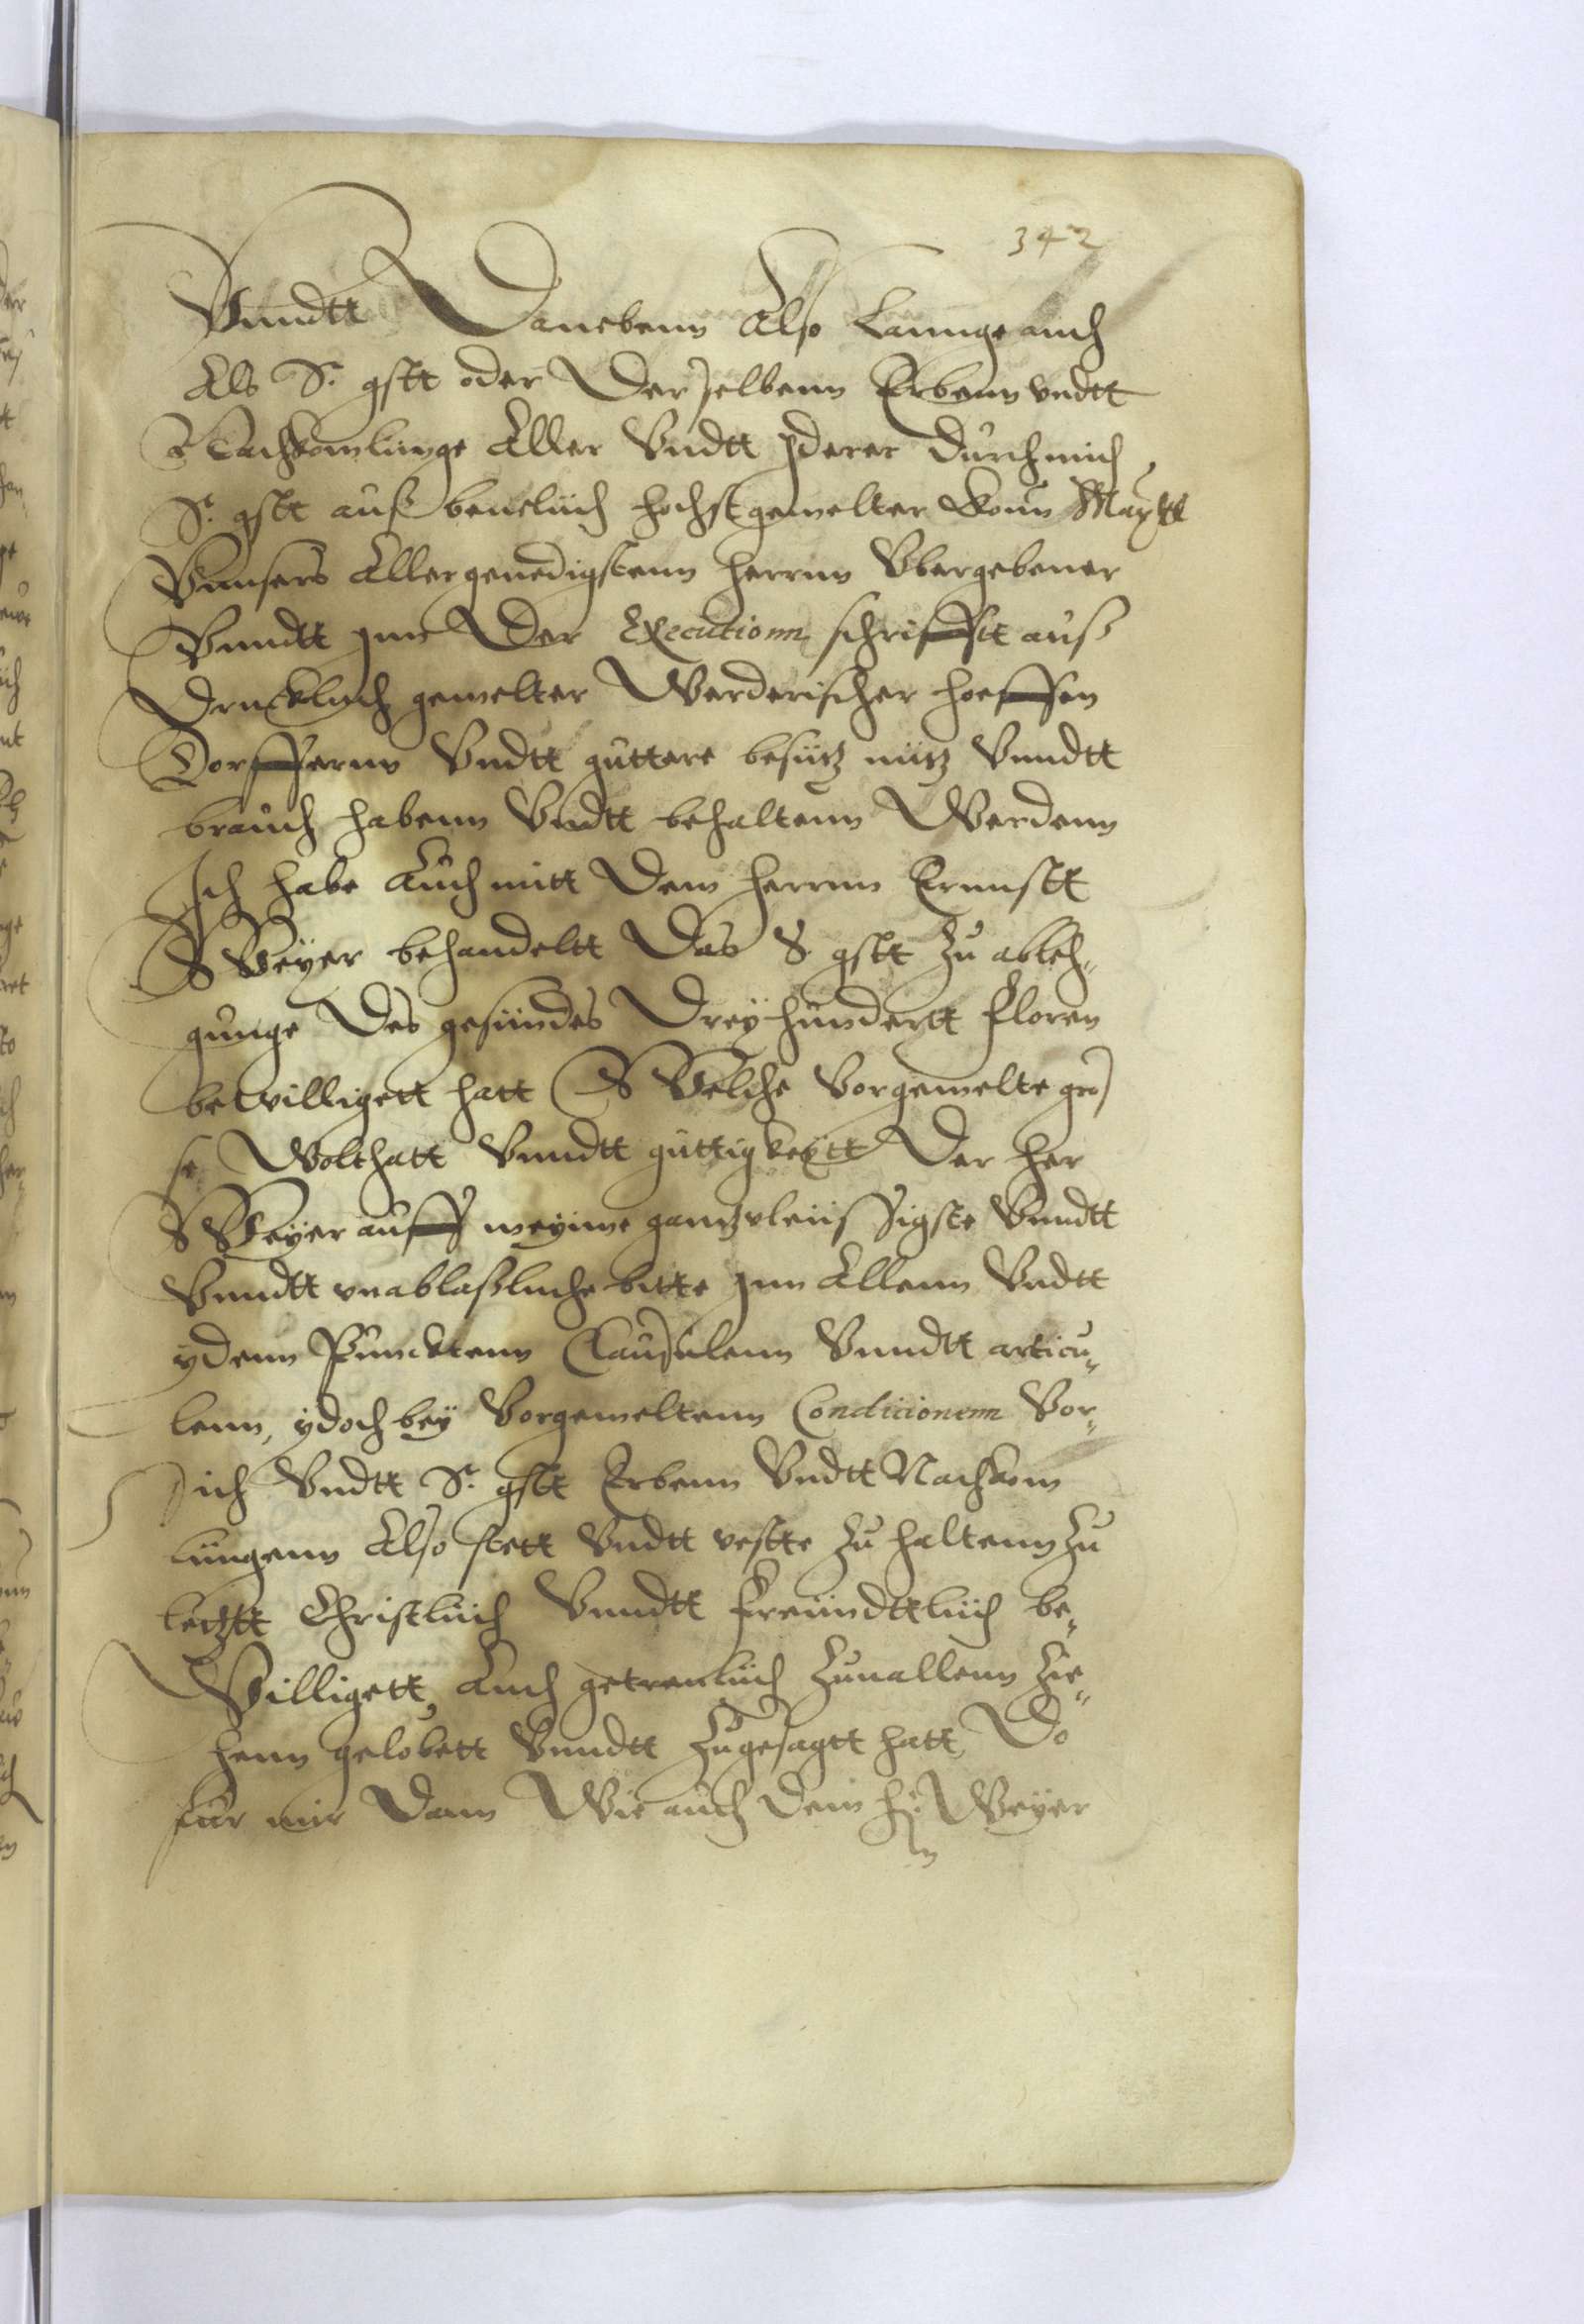 342
Vnndtt Danebenn Also Lannge auch
Als Sr. gstt oder Derselbenn Erbenn vndtt
Nachkomlinge Aller Vndtt Jderer durch mich
Sr. gstt auß beuelich hochstgemelter Konn Maytt
Vnnsers Allergenedigstenn herrnn Vbergebener
Vnndtt jnn Der Executionn schrifftt auß
Drucklich gemelter Werderischer hoeffen
Dorffernn Vndtt guttere besütz nütz Vnndtt
brauch habenn Vndtt behaltenn Werdenn
Ich habe Auch mitt Dem herrnn Ernnstt
Weyer behandeltt Das S. gstt Zu ableh„
gunge Des gesindes Dreyhundertt Floren
bewilligett hatt Welche Vorgemelte gro
se Wolthatt Vnndtt guttigkeytt Der her
Weyer auff meyine gantz vleissigste Vnndtt
Vnndtt vnablaßliche bitte jnn Allenn Vndtt
ydenn Puncktenn Clausulenn Vnndtt articu„
lenn, ydoch bey Vorgemeltenn Condicionenn Vor„
sich Vndtt Sr. gstt Erbenn Vndtt Nachkom
lingenn Also stett Vndtt vestte Zu haltenn Zu
letztt Christlich Vnndtt Freundttlich be„
Willigett, Auch getreulich Zunallenn Zie„
henn gelobett Vnndtt Zugesagtt hatt, Do
für mir Dann Wie auch dem hr: Weyer